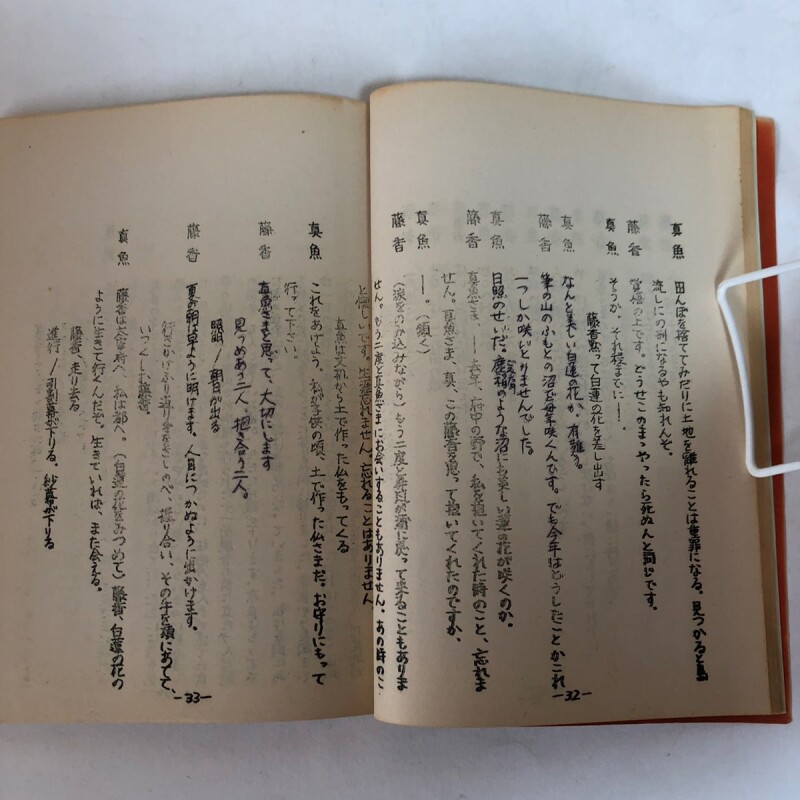 真魚 田んぼを捨ててみだりに土地を離れることは重罪になる。見つかると島
流しにの刑になるやも知れんぞ。
藤香 覚悟の上です。どうせこのままやったら死ぬんと同じです。
真魚 そうか。それ程までに――。
藤香黙って白蓮の花を差し出す
真魚 なんと美しい白蓮の花か、有難う。
藤香 筆の山のふもとの沼で毎年咲くんです。でも今年はどうしたことかこれ
一つしか咲いとりませんでした。
真魚 日照のせいだ。のような沼にも美しい蓮の花が咲くのか。
藤香 真魚さま、――去年、府中の野で、私を抱いてくれた時のこと、忘れま
せん。真魚さま、真、この藤香を思って抱いてくれたのですか、
真魚 ――。（頷く）
藤香 （涙をのみ込みながら）もう二度と年月が溯に戻って来ることもありま
せん。もう二度と真魚さまにお会いすることもありません。あの時のこ
と悔しいです。生涯忘れません。忘れることはありません
真魚は文机から土で作った仏をもってくる
真魚 これをあげよう。私が子供の頃、土で作った仏さまだ。お守りにもって
行って下さい。
藤香 真魚さまと思って、大切にします
見つめあう二人、抱き合う二人。
照明／朝日が出る
藤香 夏の朝は早ように明けます。人目につかぬように出かけます。
行きかけふり返り手をさしのべ、握り合い、その手を頬にあてて、
いつくしむ藤香。
真魚 藤香は太宰府へ、私は都へ。（白蓮の花をみつめて）藤香、白蓮の花の
ように生きて行くんだぞ。生きていれば、また会える。
藤香、走り去る
進行／引割幕が下りる。紗幕が下りる
－32－
－33－